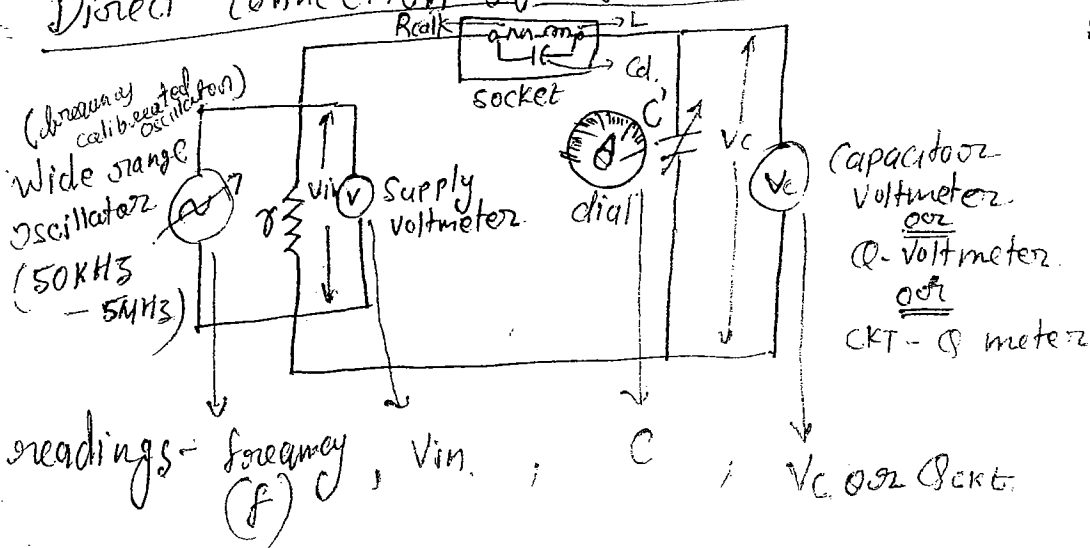 Direct Connection
Rcoil
L
Cd.
socket
(frequency
calibrated
oscillator)
Wide range
Oscillator
(50KHz
- 5MHz)
r
Vin
V
Supply
voltmeter.
dial
C'
Vc
Vc
Capacitor
Voltmeter.
oor
Q-Voltmeter.
oor
CKT-Q meter
readings- frequency, Vin. ; C ; Vc oor Qckt.
(f)